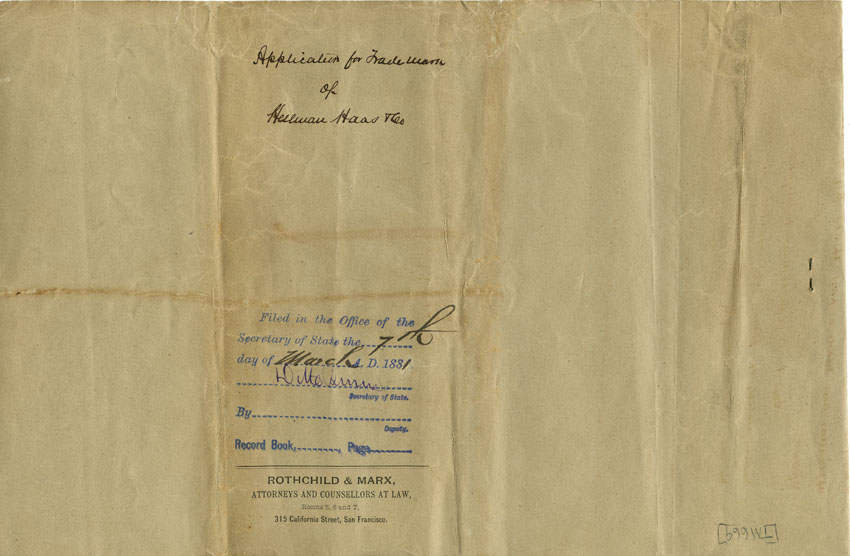 Application for Trade Mark
of
Hellman Haas & Co
Filed in the Office of the
Secretary of State the 7th
day of March A. D. 1881
Secretary of State.
By
Deputy.
Record Book, , Page
ROTHCHILD & MARX,
ATTORNEYS AND COUNSELLORS AT LAW,
Rooms 5, 6 and 7,
315 California Street, San Francisco.
[TM669]